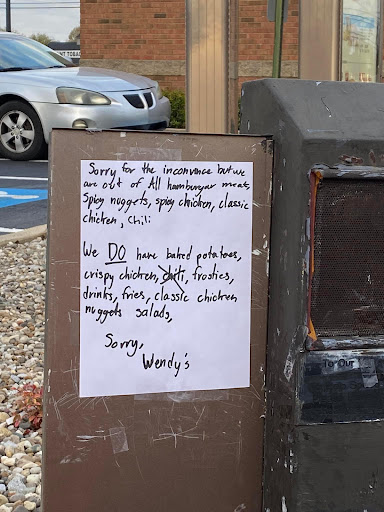 NT TOBACCO
Sorry for the inconvince but we
are out of All hamburgar meat,
Spicy nuggets, spicy chicken, classic
chicken, Chili
We DO have baked potatoes,
crispy chicken, chili, frosties,
drinks, fries, classic chicken
nuggets salads,
Sorry,
Wendy's
To Our